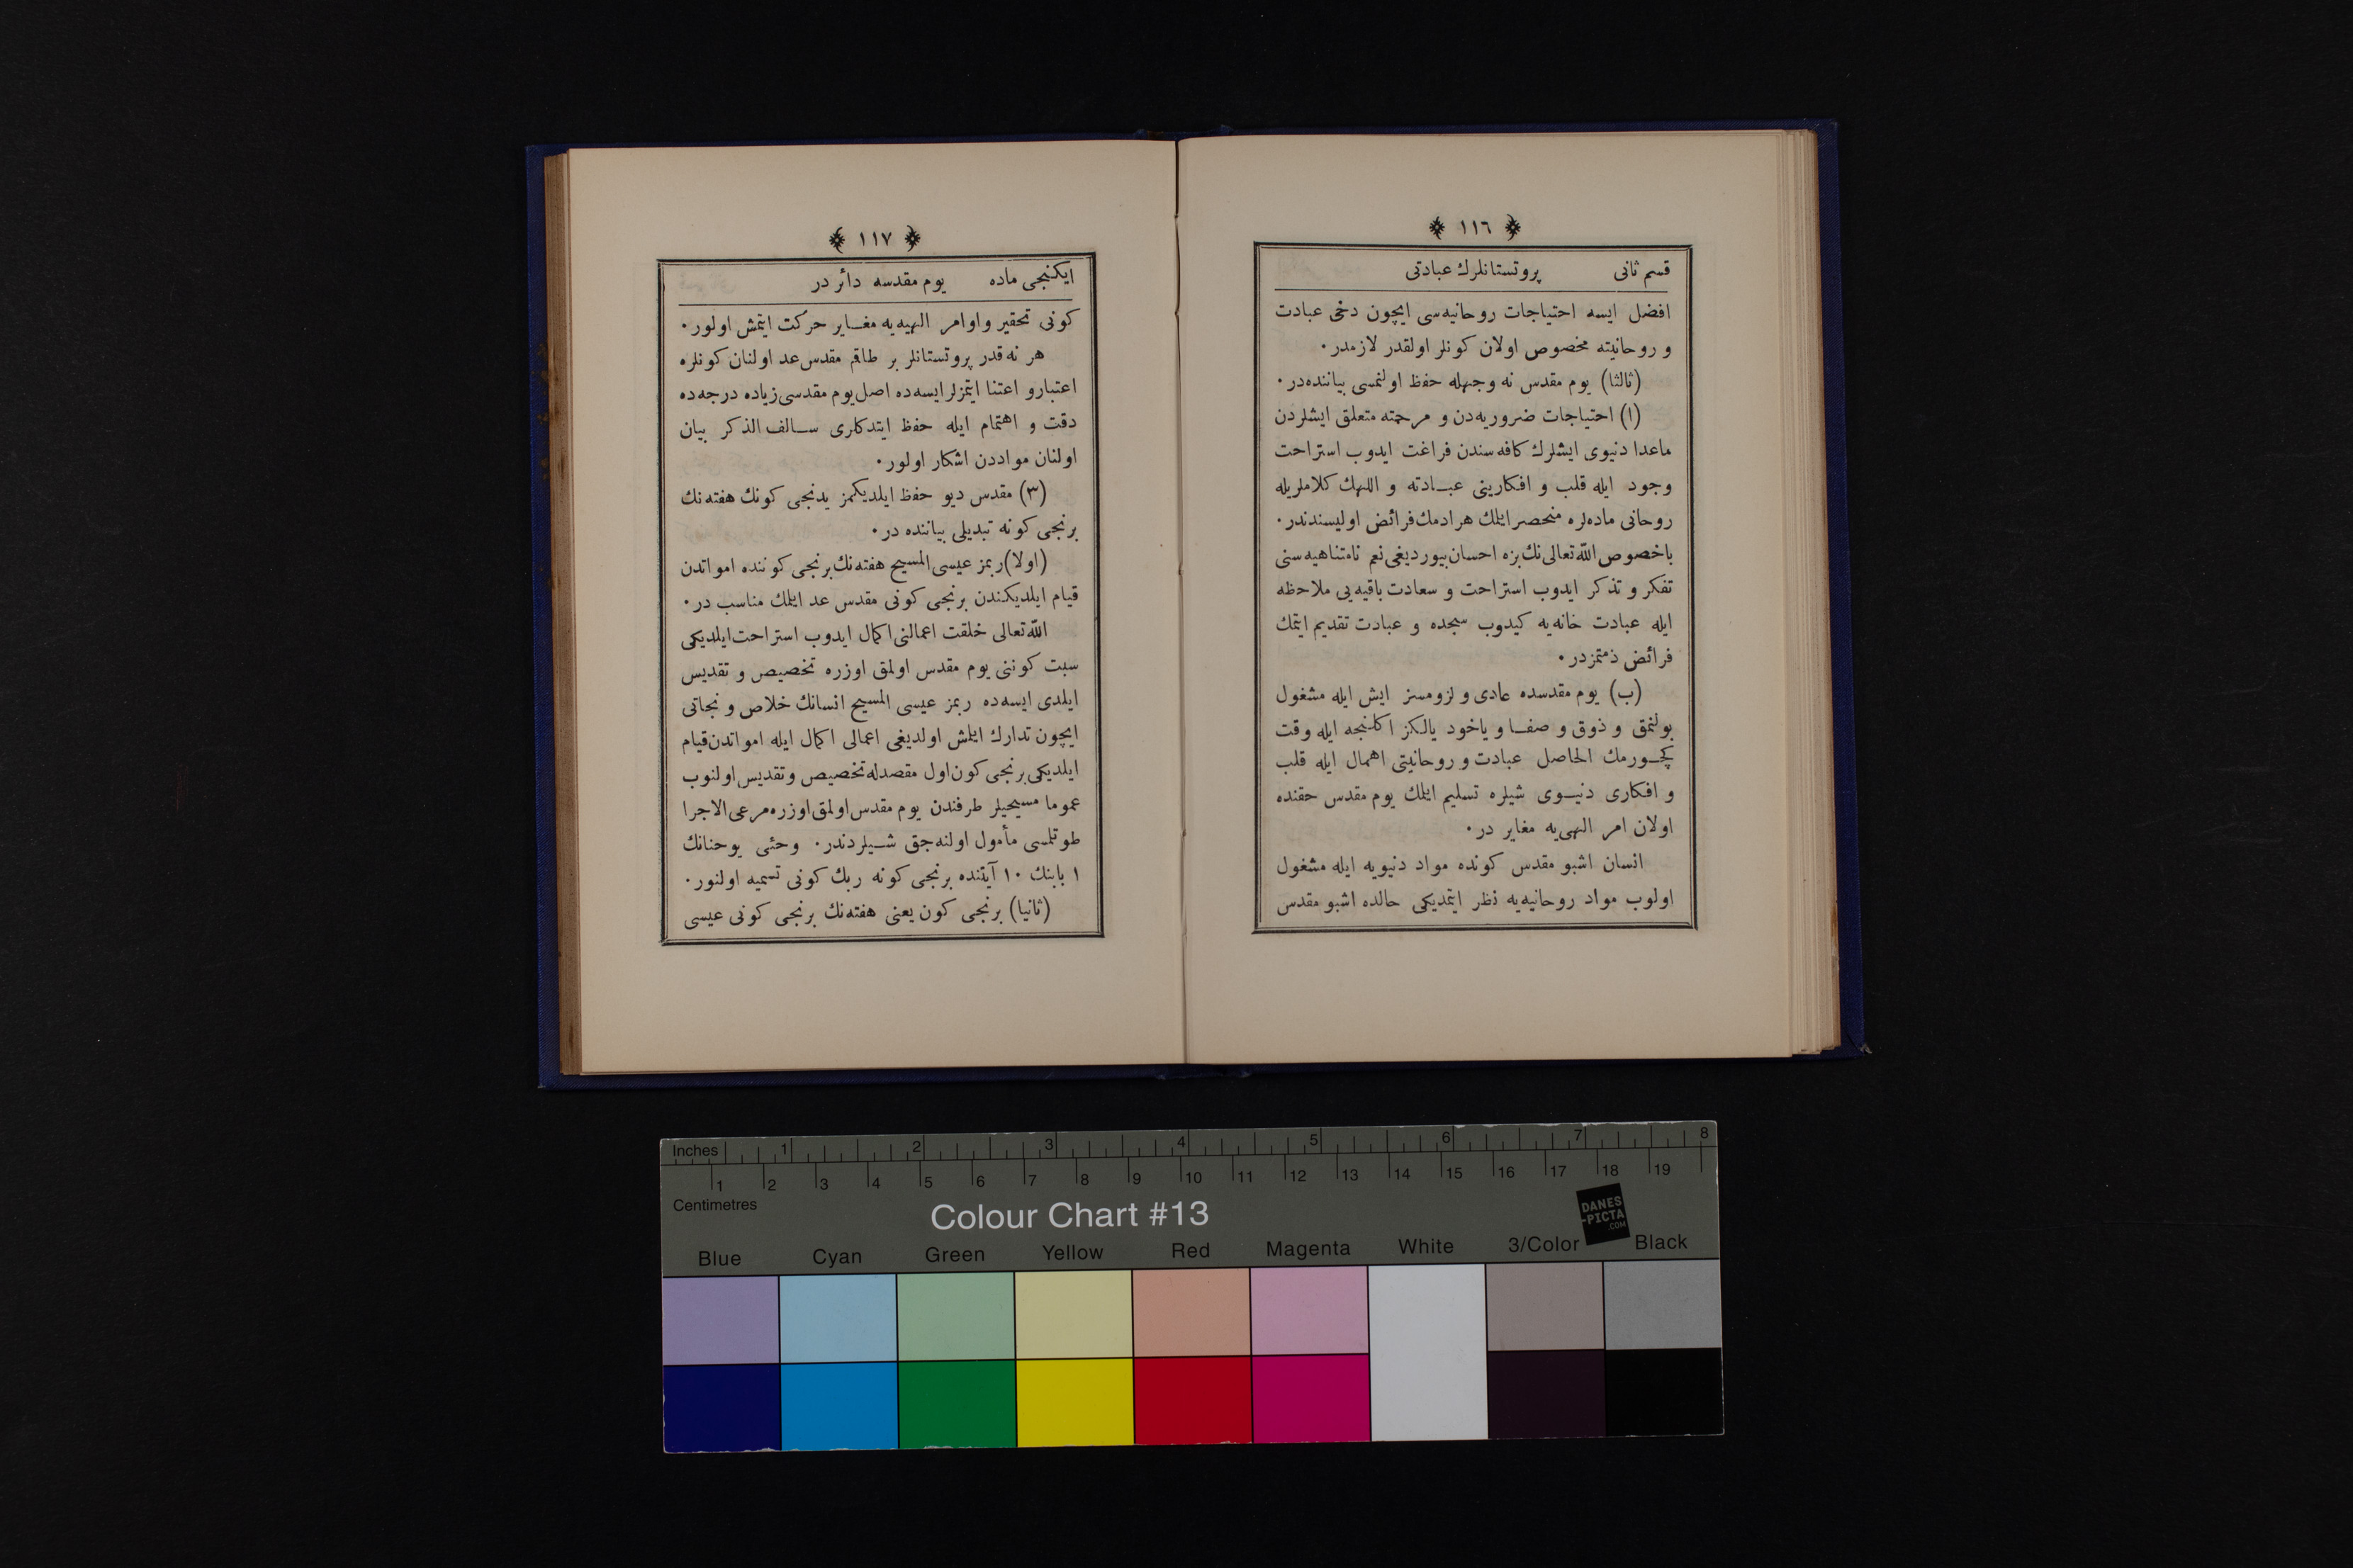 ﴿ ١١٦ ﴾
قسم ثانى پروتستانلرك عبادتى
افضل ايسه احتياجات روحانيه‌سى ايچون دخى عبادت
و روحانيته مخصوص اولان كونلر اولقدر لازمدر.
(ثالثا) يوم مقدس نه وجهله حفظ اولنمسى بياننده‌در.
(ا) احتياجات ضروريه‌دن و مرحمته متعلق ايشلردن
ماعدا دنيوى ايشلرك كافه‌سندن فراغت ايدوب استراحت
وجود ايله قلب و افكارينى عبادته و اللهك كلاملريله
روحانى ماده‌لره منحصر ايلمك هر ادمك فرائض اوليسندندر.
باخصوص الله تعالى نك بزه احسان بيورديغى نعم نامتناهيه‌سنى
تفكر و تذكر ايدوب استراحت و سعادت باقيه‌يى ملاحظه
ايله عبادت خانه‌يه كيدوب سجده و عبادت تقديم ايتمك
فرائض ذمتمزدر.
(ب) يوم مقدسده عادى و لزومسز ايش ايله مشغول
بولنمق و ذوق و صفا و ياخود يالكز اكلنجه ايله وقت
كچورمك الحاصل عبادت و روحانيتى اهمال ايله قلب
و افكارى دنيوى شيلره تسليم ايلمك يوم مقدس حقنده
اولان امر الهى‌يه مغاير در.
انسان اشبو مقدس كونده مواد دنيويه ايله مشغول
اولوب مواد روحانيه‌يه نظر ايتمديكى حالده اشبو مقدس
﴿ ١١٧ ﴾
ايكنجى ماده يوم مقدسه دائر در
كونى تحقير و اوامر الهيه‌يه مغاير حركت ايتمش اولور.
هر نه قدر پروتستانلر بر طاقم مقدس عد اولنان كونلره
اعتبار و اعتنا ايتمزلر ايسه‌ده اصل يوم مقدسى زياده درجه‌ده
دقت و اهتمام ايله حفظ ايتدكلرى سالف الذكر بيان
اولنان مواددن اشكار اولور.
(٣) مقدس ديو حفظ ايلديكمز يدنجى كونك هفته نك
برنجى كونه تبديلى بياننده در.
(اولا) ربمز عيسى المسيح هفته نك برنجى كوننده امواتدن
قيام ايلديكندن برنجى كونى مقدس عد ايلمك مناسب در.
الله تعالى خلقت اعمالنى اكمال ايدوب استراحت ايلديكى
سبت كوننى يوم مقدس اولمق اوزره تخصيص و تقديس
ايلدى ايسه‌ده ربمز عيسى المسيح انسانك خلاص و نجاتى
ايچون تدارك ايلمش اولديغى اعمالى اكمال ايله امواتدن قيام
ايلديكى برنجى كون اول مقصدله تخصيص و تقديس اولنوب
عموما مسيحيلر طرفندن يوم مقدس اولمق اوزره مرعى الاجرا
طوتلمسى مأمول اولنه‌جق شيلردندر. وحئى يوحنانك
١ بابنك ١٠ آيتنده برنجى كونه ربك كونى تسميه اولنور.
(ثانيا) برنجى كون يعنى هفته نك برنجى كونى عيسى
Inches 1 2 3 4 5 6 7 8
1 2 3 4 5 6 7 8 9 10 11 12 13 14 15 16 17 18 19
Centimetres
Colour Chart #13
DANES
-PICTA
.COM
Blue Cyan Green Yellow Red Magenta White 3/Color Black